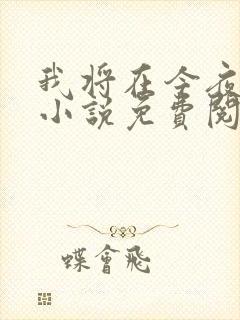 我将在今夜
小说免費閱
蝶會飛